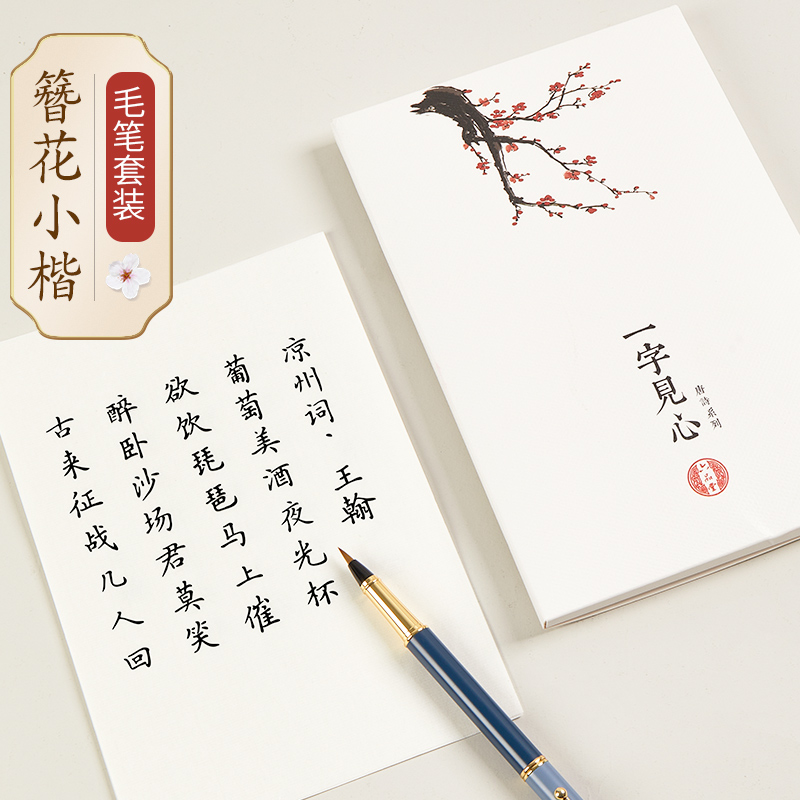 簪花小楷
毛笔套装
凉州词、王翰
葡萄美酒夜光杯
欲饮琵琶马上催
醉卧沙场君莫笑
古来征战几人回
一字見心
唐詩系列
六品堂